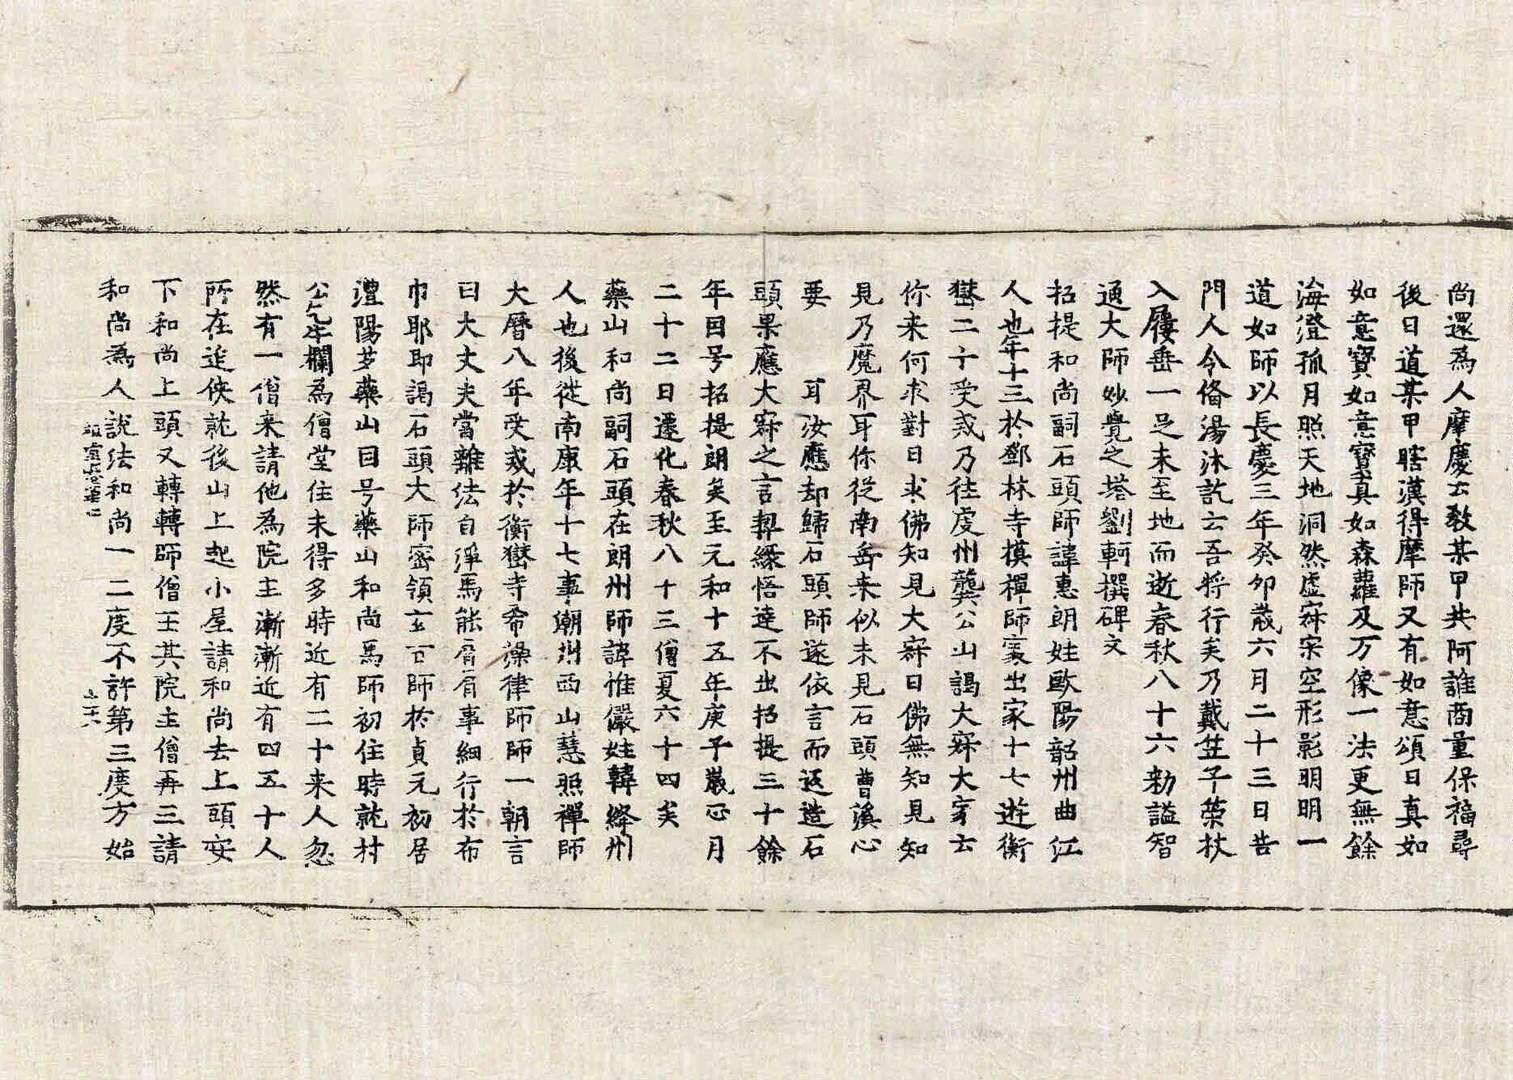 尚還爲人摩慶云教某甲共阿誰商量保福尋
後日道某甲瞎漢得摩師又有如意頌日真如
如意寶如意寶真如森蘿及万像一法更無餘
海澄孤月照天地洞然虛寂寂空形影明明一
道如師以長慶三年癸卯歲六月二十三日告
門人令俻湯沐訖云吾將行矣乃戴笠子策杖
入屨垂一足未至地而逝春秋八十六勑謚智
通大師妙覺之塔劉軻撰碑文
招提和尚嗣石頭師諱惠朗姓歐陽韶州曲江
人也年十三於鄧林寺摸禪師䝉出家十七遊衡
嶽二十受戒乃往虔州龔公山謁大寂大寂云
你来何求對日求佛知見大寂日佛無知見知
見乃魔界耳你從南岳来似未見石頭曹溪心
要　耳汝應却歸石頭師遂依言而返造石
頭果應大寂之言契緣悟達不出招提三十餘
年因号招提朗矣至元和十五年庚子歲正月
二十二日遷化春秋八十三僧夏六十四矣
藥山和尚嗣石頭在朗州師諱惟儼姓韓絳州
人也後從南康年十七事潮州西山慧照禪師
大曆八年受戒於衡嶽寺希澡律師師一朝言
曰大丈夫當離法自淨焉能屑屑事細行於布
巾耶即謁石頭大師密領玄旨師於貞元初居
澧陽芍藥山因号藥山和尚焉師初住時就村
公乞牛欄爲僧堂住未得多時近有二十来人忽
然有一僧来請他爲院主漸漸近有四五十人
所在迫俠就後山上起小屋請和尚去上頭安
下和尚上頭又轉轉師僧王其院主僧再三請
和尚爲人說法和尚一二度不許第三度方始